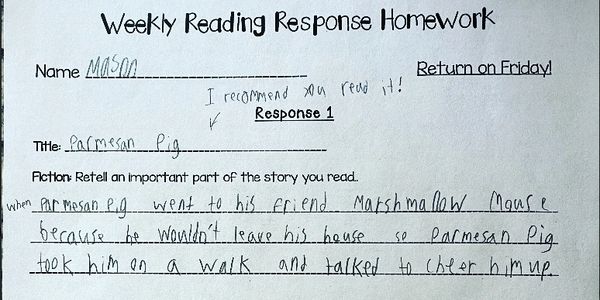 Weekly Reading Response Homework
Name Mason
Return on Friday!
I recommend you read it!
Response 1
Title: Parmesan Pig
Fiction: Retell an important part of the story you read.
when Parmesan Pig went to his friend Marshmallow Mouse
because he wouldn't leave his house so Parmesan Pig
took him on a walk and talked to cheer him up.